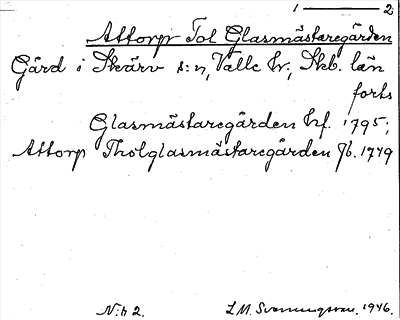 1 ——— 2
Attorp Tol Glasmästaregården
Gård i Skärv s:n, Valle hr; Skb. län
forts
Glasmästaregården hf. 1795;
Attorp Tholglasmästaregården Jb. 1779
N:k 2. L.M. Svenungsson. 1946.